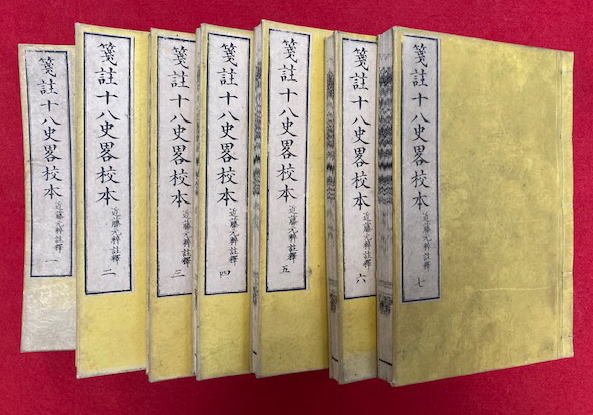 箋註十八史畧校本 近藤元粹註釋 一
箋註十八史畧校本 近藤元粹註釋 二
箋註十八史畧校本 近藤元粹註釋 三
箋註十八史畧校本 近藤元粹註釋 四
箋註十八史畧校本 近藤元粹註釋 五
箋註十八史畧校本 近藤元粹註釋 六
箋註十八史畧校本 近藤元粹註釋 七